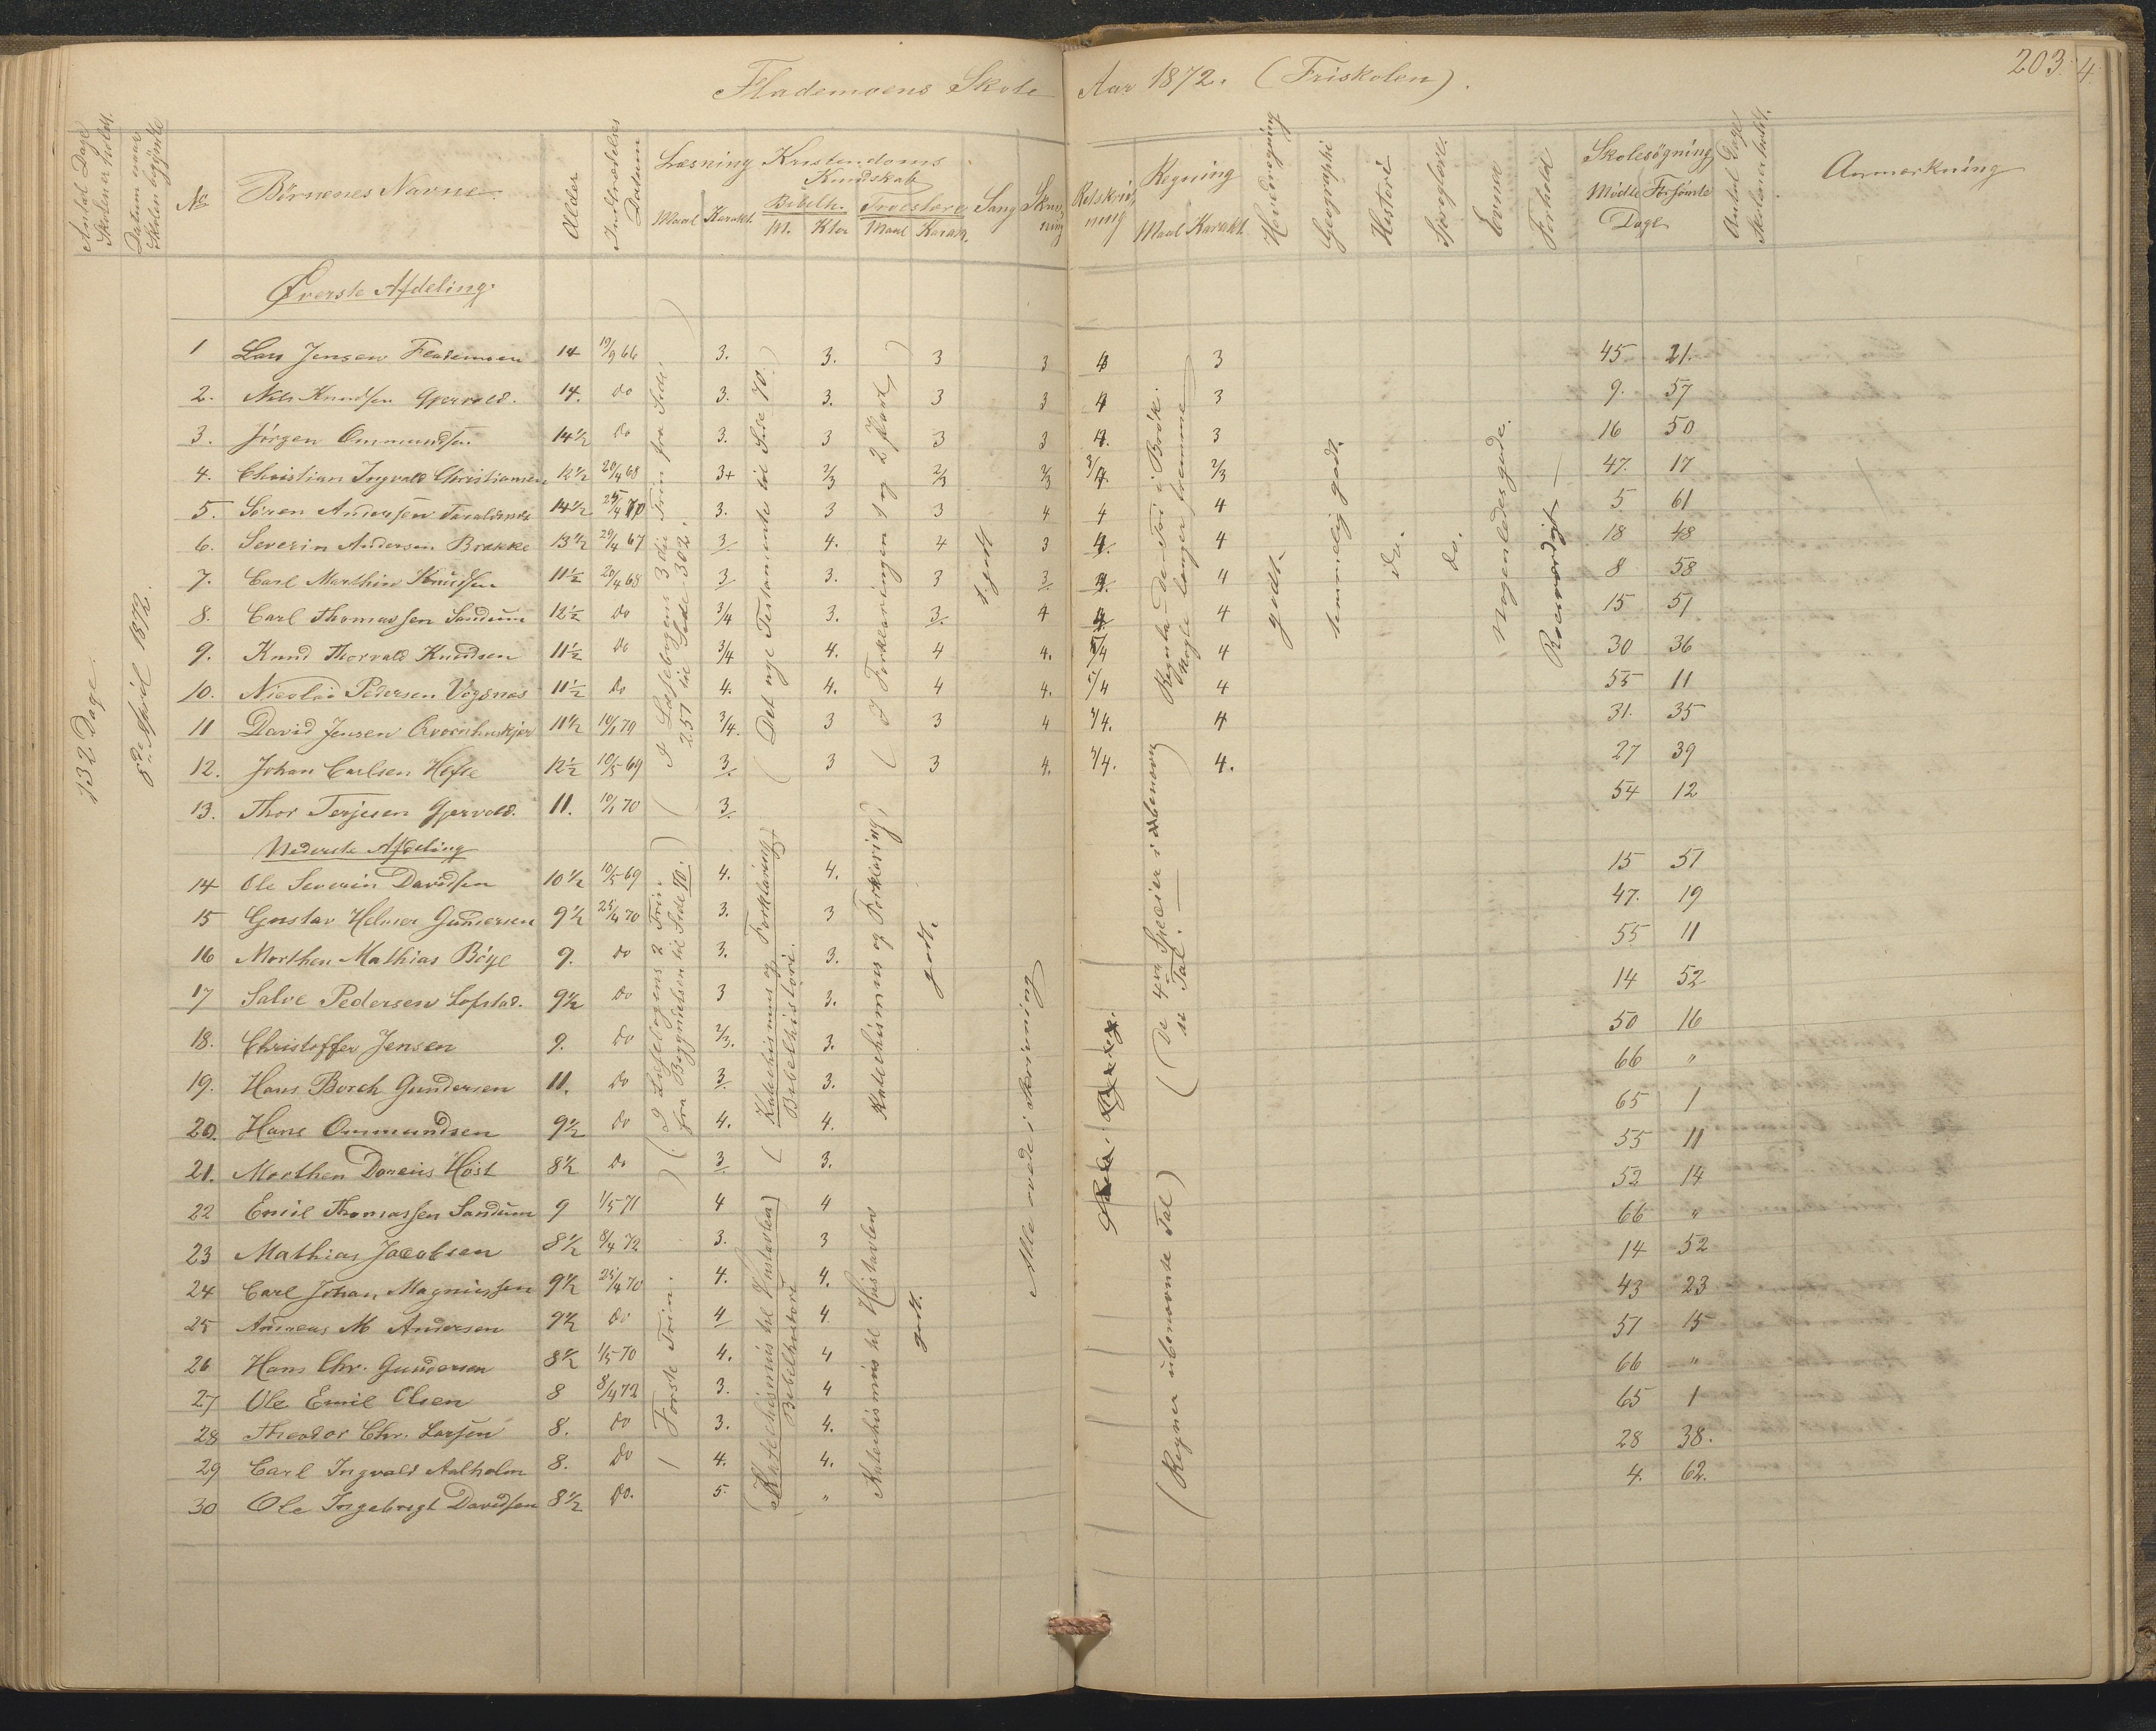 203.
4.
Flademoens Skole Aar 1872. (Friskolen).
Antal Dage Skolen er holdt.
Datum naar Skolen begynte
No
Börnenes Navne
Alder
Indtrædelses Datum
Læsning
Maal Karakt.
Kristendoms Kundskab
Bibelh. M. Kter
Troeslære Maal Karakt.
Sang
Skrivning
Retskrivning
Regning
Maal Karakt
Hovedregning
Geographi
Histori
Sproglære
Evner
Forhold
Skolesøgning
Mödte Forsömte
Dage
Antal Dage Skolen er holdt.
Anmærkning
132 Dage.
8de April 1872.
Øverste Afdeling.
1 Lars Jensen Flademoen 14 19/9 66 3. 3. 3 3 4 3 45 21.
2. Nils Knudsen Gjervold. 14. do 3. 3. 3 3 4 3 9. 57
3. Jörgen Ommundsen 14½ Do 3. 3 3 3 4. 3 16 50
4. Christian Ingvald Christiansen 12½ 20/4 68 3+ 2/3 2/3 2/3 3/4 2/3 47. 17
5. Sören Andersen 14½ 25/4 70 3. 3 3 4 4 4 5 61
6. Severin Andersen Brække 13½ 29/4 67 3 4. 4 3 4. 4 18 48
7. Carl Marthin Knudsen 11½ 20/4 68 3 3. 3 3 4. 4 8 58
8. Carl Thomassen Sandum 12½ Do 3/4 3. 3. 4 4 4 15 51
9. Knud Thorvald Knudsen 11½ Do 3/4 4. 4 4. 5/4 4 30 36
10. Nicolai Pedersen Vågsnes 11½ Do 4. 4. 4 4. 5/4 4 55 11
11 David Jensen Qvernhuskjær 11½ 10/1 70 3/4. 3 3 4 3/4. 4 31. 35
12. Johan Carlsen Hefte 12½ 10/5 69 3. 3 3 4. 3/4. 4. 27 39
13. Thor Terjesen Gjervold. 11. 10/1 70 3. 54 12
Nederste Afdeling
14 Ole Severin Davidsen 10½ 10/5 69 4. 4. 15 51
15 Gustav Helmer Gundersen 9½ 25/4 70 3. 3 47. 19
16 Morthen Mathias Böye 9. Do 3. 3. 55 11
17 Salve Pedersen Lofstad. 9½ Do 3 3. 14 52
18. Christoffer Jensen 9. Do 2/3. 3. 50 16
19. Hans Borch Gundersen 11. Do 3 3. 66 "
20. Hans Ommundsen 9½ Do 4. 4. 65 1
21. Morthen Doreius Höst 8½ Do 3 3. 55 11
22 Emil Thomassen Sandum 9 1/5 71 4 4 52 14
23 Mathias Jacobsen 8½ 8/4 72 3. 3 66 "
24 Carl Johan Magnussen 9½ 25/4 70 4. 4. 14 52
25 Andreas M Andersen 9½ Do 4 4 43 23
26 Hans Chr. Gundersen 8½ 1/5 70 4. 4 51 15
27 Ole Emil Olsen 8 8/4 72 3. 4 66 "
28 Theodor Chr. Larsen 8. Do 3. 4. 65 1
29 Carl Ingvald Aalholm 8. Do 4. 4. 28 38.
30 Ole Ingebregt Davidsen 8½ Do. 5. " 4. 62.
(I Læsebogens 3die Trin fra Side
251 til Side 302.)
(Det nye Testamente til Side 70.)
(I Forklaringen 1 og 2 Part)
t. godt
Regula-De-Tri i Brök.
Nogle længer fremme
godt.
temmelig godt.
do.
do.
Nogenledes gode.
Roesværdigt
(I Læsebogens 2 Trin
fra Begyndelsen til Side 70.)
(Katechismus og Forklaring)
Bibelhistori.
Katechismus og Forklaring)
godt.
Alle øvede i Skrivning
(De 4re Specier i ubenævn
te Tal.
Förste Trin.
(Katechismus til Hustavlen)
Bibelhistori
Katechismus til Hustavlen
godt.
(Regner ubenævnte Tal)